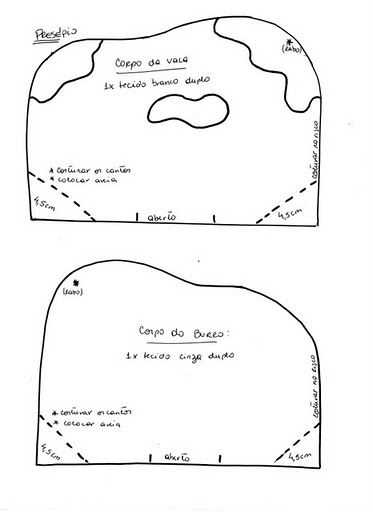 Presépio
*
(Rabo)
Corpo da vaca
1x tecido branco duplo
costurar no risco
* costurar os cantos
* colocar areia
4,5cm
aberto
4,5cm
*
(Rabo)
Corpo do Burro:
1x tecido cinza duplo
costurar no risco
* costurar os cantos
* colocar areia
4,5cm
aberto
4,5cm